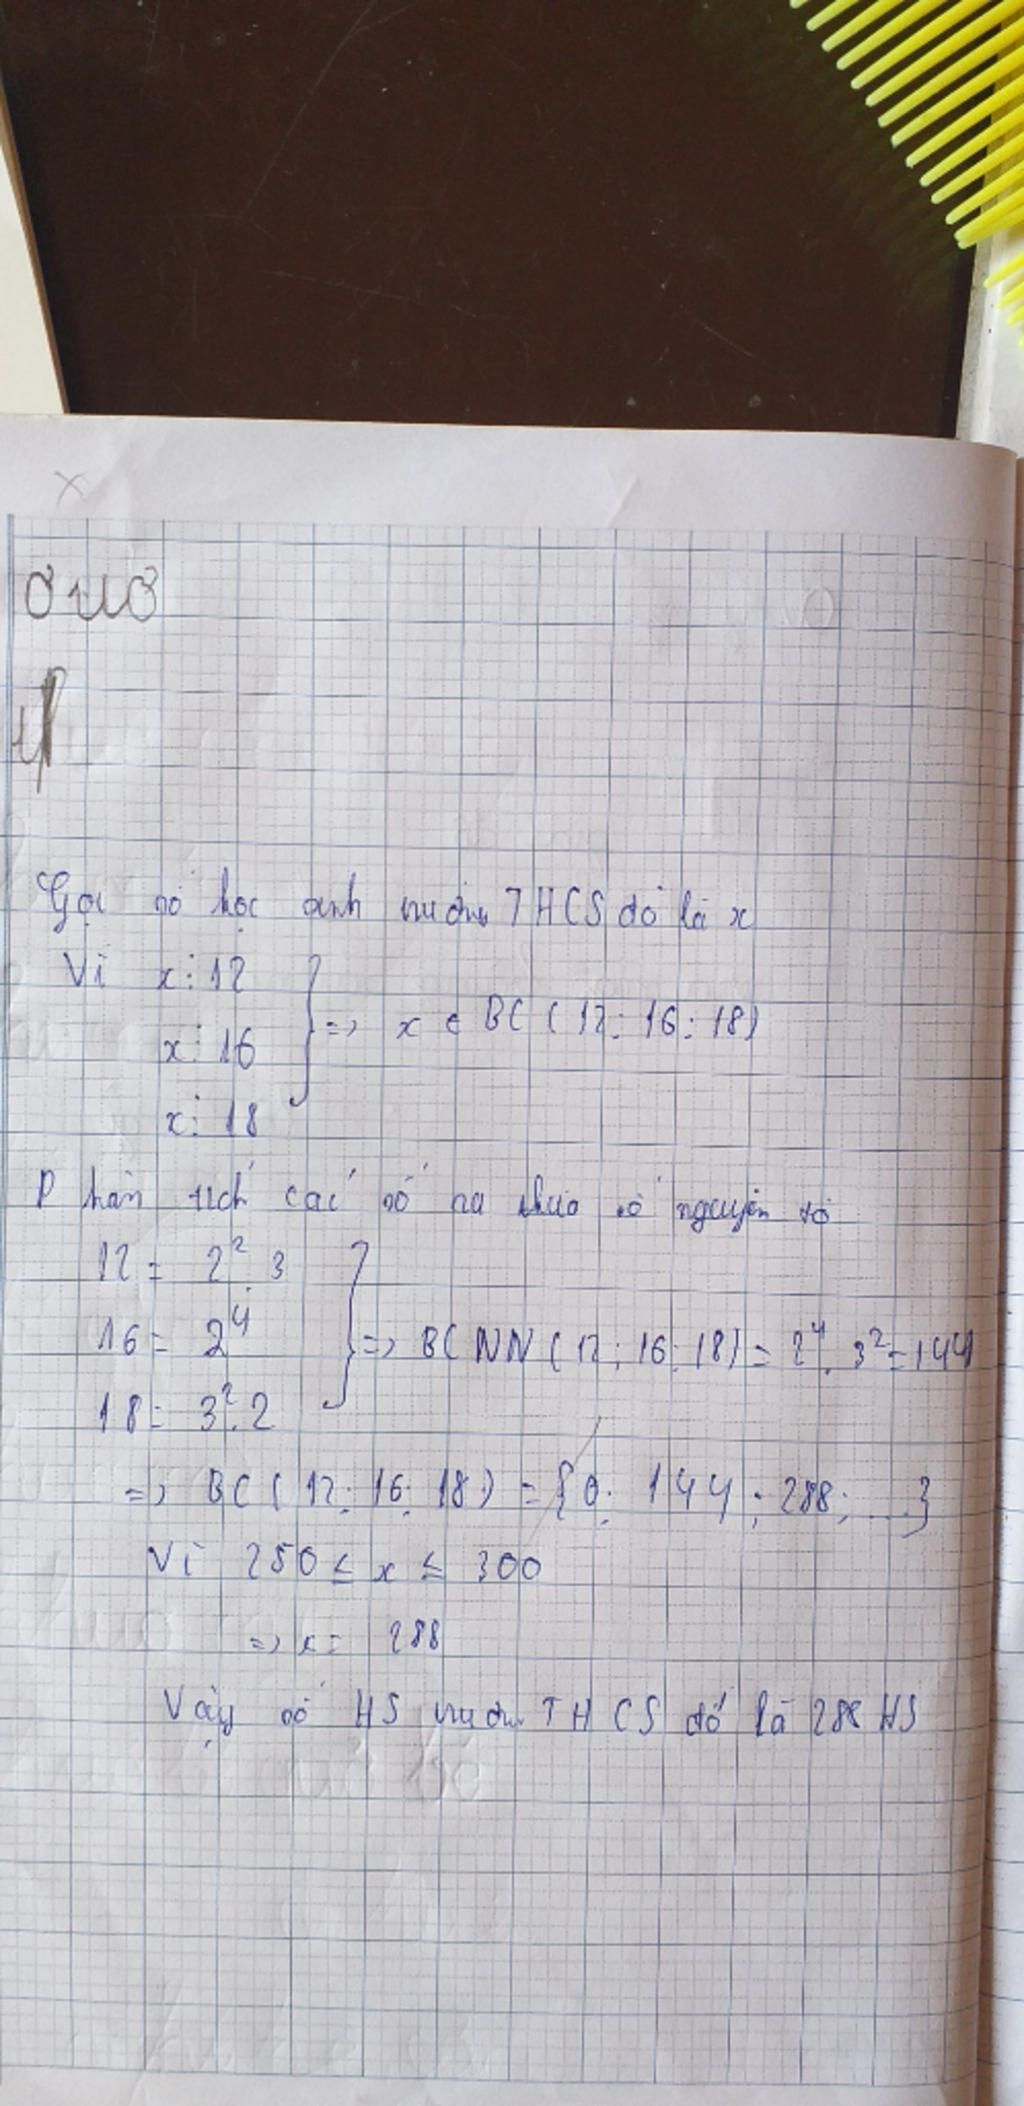 Gọi số học sinh trường THCS đó là x
Vì x ⋮ 12
x ⋮ 16
=> x ∈ BC ( 12 ; 16 ; 18 )
x ⋮ 18
Phân tích các số ra thừa số nguyên tố
12 = 2² . 3
16 = 2⁴
=> BCNN ( 12 ; 16 ; 18 ) = 2⁴ . 3² = 144
18 = 3² . 2
=> BC ( 12 ; 16 ; 18 ) = { 0 ; 144 ; 288 ; ... }
Vì 250 ≤ x ≤ 300
=> x = 288
Vậy số HS trường THCS đó là 288 HS